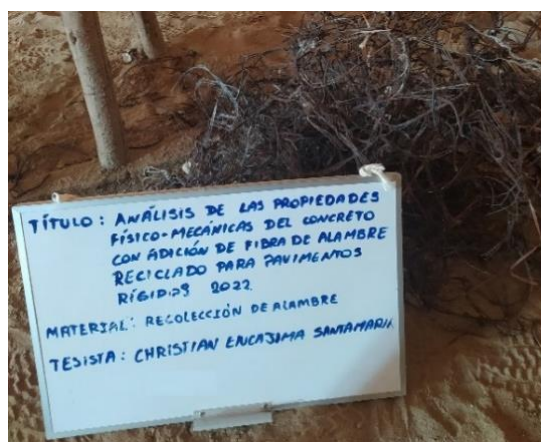 TÍTULO: ANÁLISIS DE LAS PROPIEDADES
FÍSICO-MECÁNICAS DEL CONCRETO
CON ADICIÓN DE FIBRA DE ALAMBRE
RECICLADO PARA PAVIMENTOS
2022
MATERIAL: RECOLECCIÓN DE ALAMBRE
TESISTA: CHRISTIAN ENCAJIMA SANTAMARIA